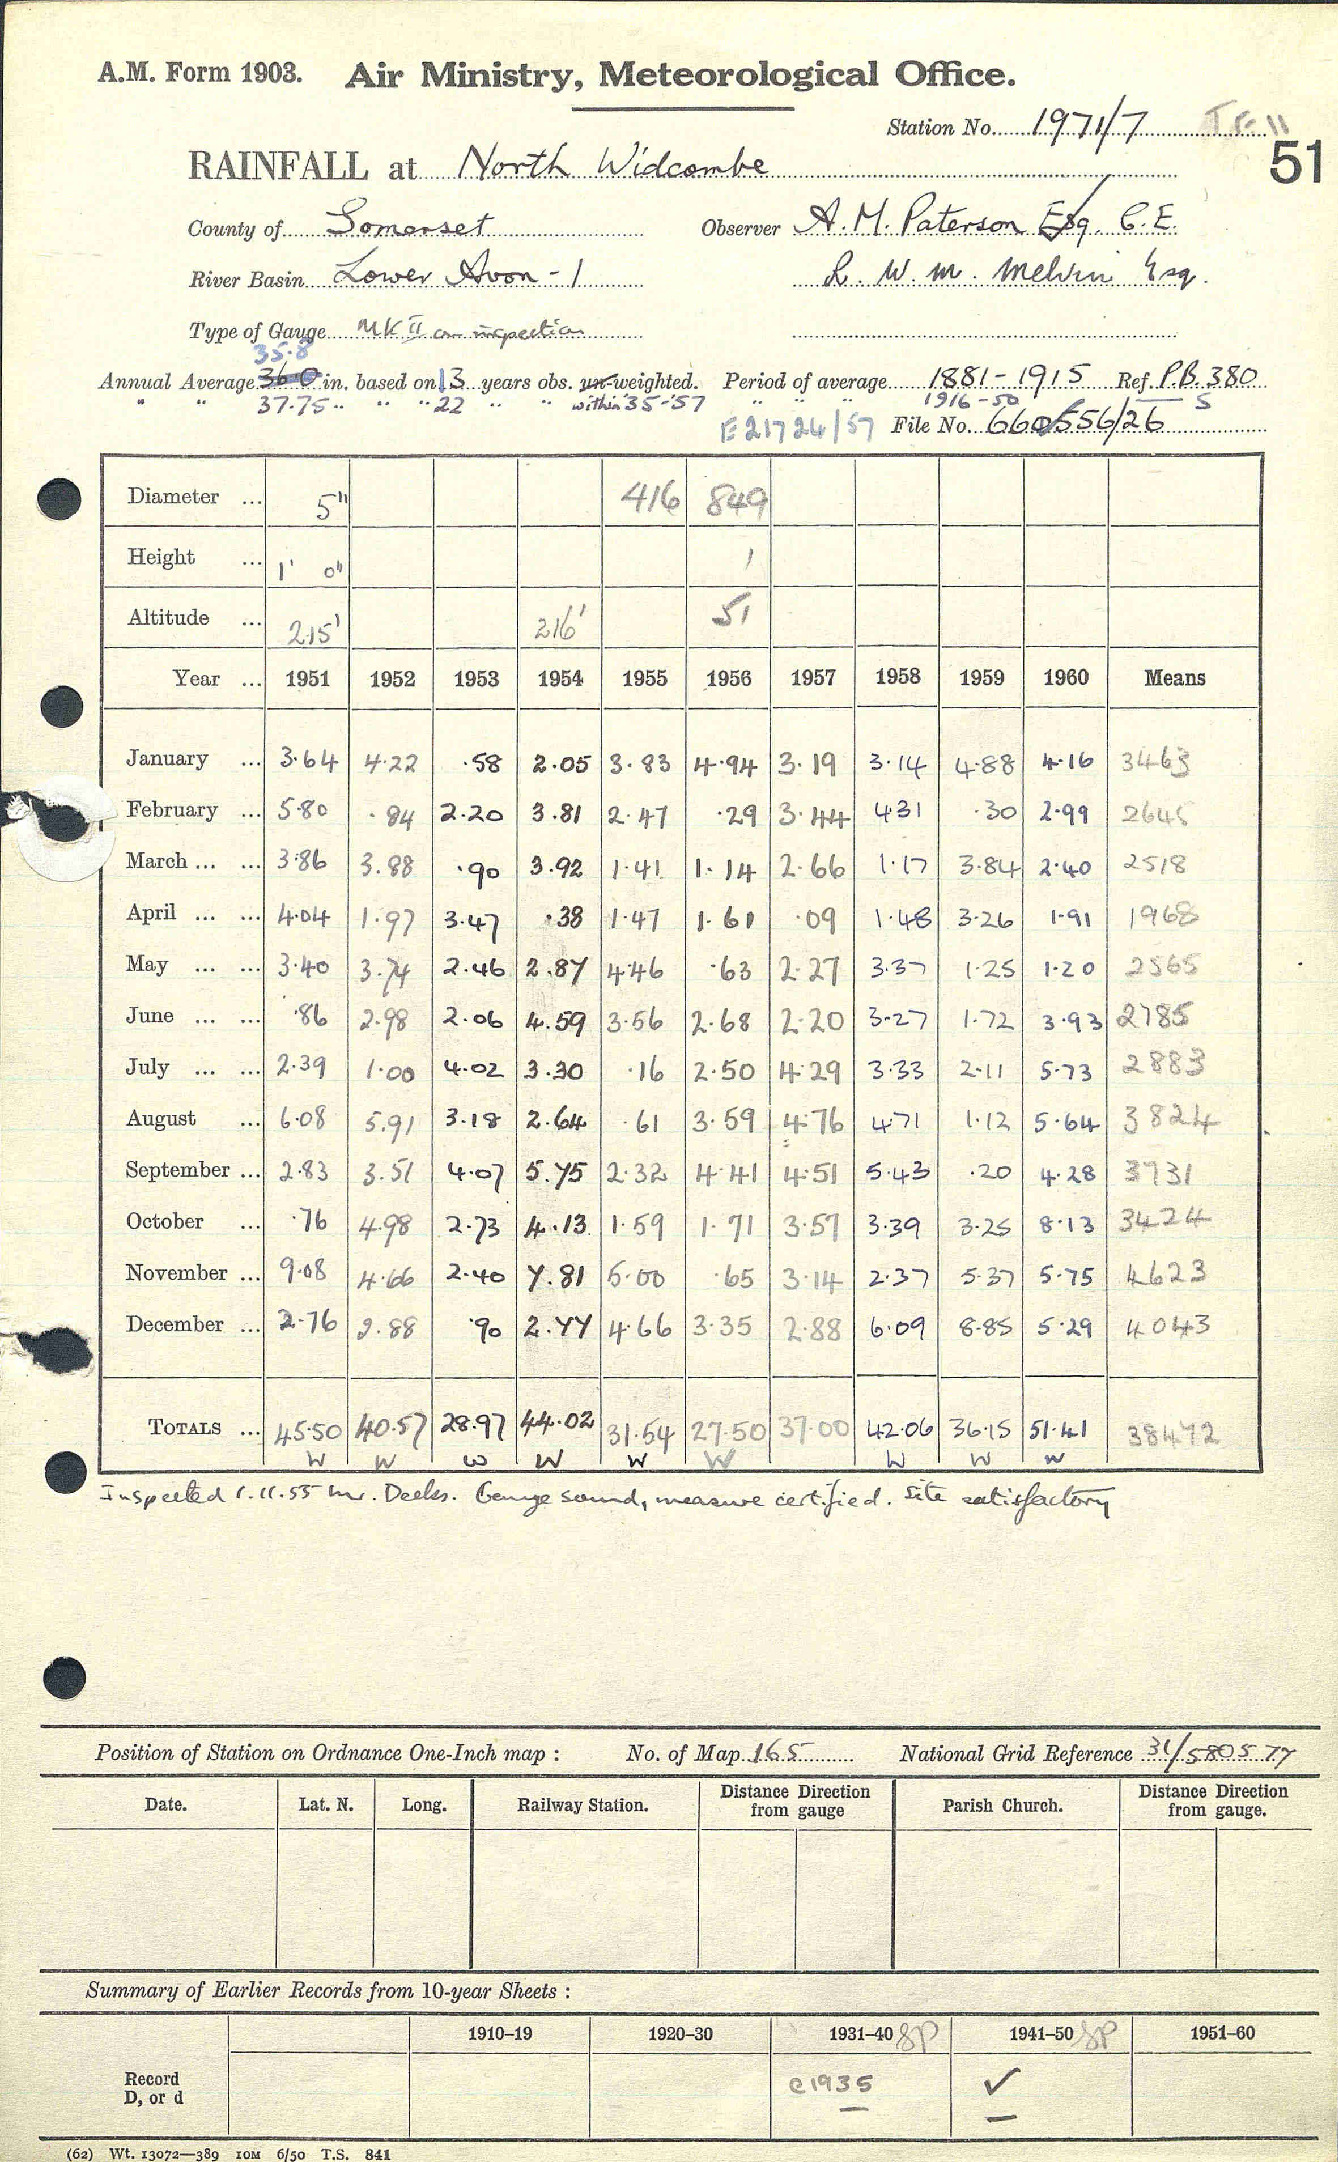 A.M. Form 1903. Air Ministry, Meteorological Office.
Station No. 1971/7
51
RAINFALL at North Widcombe
County of Somerset Observer A. M. Paterson Esq. C.E.
River Basin Lower Avon - 1 L. W. M. Melvin Esq.
Type of Gauge MK II on inspection
35.8
Annual Average 36.0 in. based on 13 years obs. un-weighted. Period of average 1881-1915 Ref. P.B. 380
" " 37.75 " " " 22 " " within 35-'57 " " " 1916-50 S
E 21724/57 File No. 660556/26
Diameter ... 5" 416 849
Height ... 1' 0" 1
Altitude ... 215' 216' 51
Year ... 1951 1952 1953 1954 1955 1956 1957 1958 1959 1960 Means
January ... 3.64 4.22 .58 2.05 3.83 4.94 3.19 3.14 4.88 4.16 3463
February ... 5.80 .84 2.20 3.81 2.47 .29 3.44 4.31 .30 2.99 2645
March ... ... 3.86 3.88 .90 3.92 1.41 1.14 2.66 1.17 3.84 2.40 2518
April ... ... 4.04 1.97 3.47 .38 1.47 1.61 .09 1.48 3.26 1.91 1968
May ... ... 3.40 3.74 2.46 2.87 4.46 .63 2.27 3.37 1.25 1.20 2565
June ... ... .86 2.98 2.06 4.59 3.56 2.68 2.20 3.27 1.72 3.93 2785
July ... ... 2.39 1.00 4.02 3.30 .16 2.50 4.29 3.33 2.11 5.73 2883
August ... 6.08 5.91 3.18 2.64 .61 3.59 4.76 4.71 1.12 5.64 3824
September ... 2.83 3.51 4.07 5.75 2.32 4.41 4.51 5.43 .20 4.28 3731
October ... .76 4.98 2.73 4.13 1.59 1.71 3.57 3.39 3.25 8.13 3424
November ... 9.08 4.66 2.40 7.81 5.00 .65 3.14 2.37 5.37 5.75 4623
December ... 2.76 2.88 .90 2.77 4.66 3.35 2.88 6.09 8.85 5.29 4043
TOTALS ... 45.50 40.57 28.97 44.02 31.54 27.50 37.00 42.06 36.15 51.41 38472
W W W W W W W W W
Inspected 1.11.55 Mr. Deeks. Gauge sound, measure certified. Site satisfactory
Position of Station on Ordnance One-Inch map : No. of Map 165 National Grid Reference 31/580577
Date. Lat. N. Long. Railway Station. Distance Direction from gauge Parish Church. Distance Direction from gauge.
Summary of Earlier Records from 10-year Sheets :
1910-19 1920-30 1931-40 SP 1941-50 SP 1951-60
Record D, or d c1935 ✓
(62) Wt. 13072—389 10M 6/50 T.S. 841